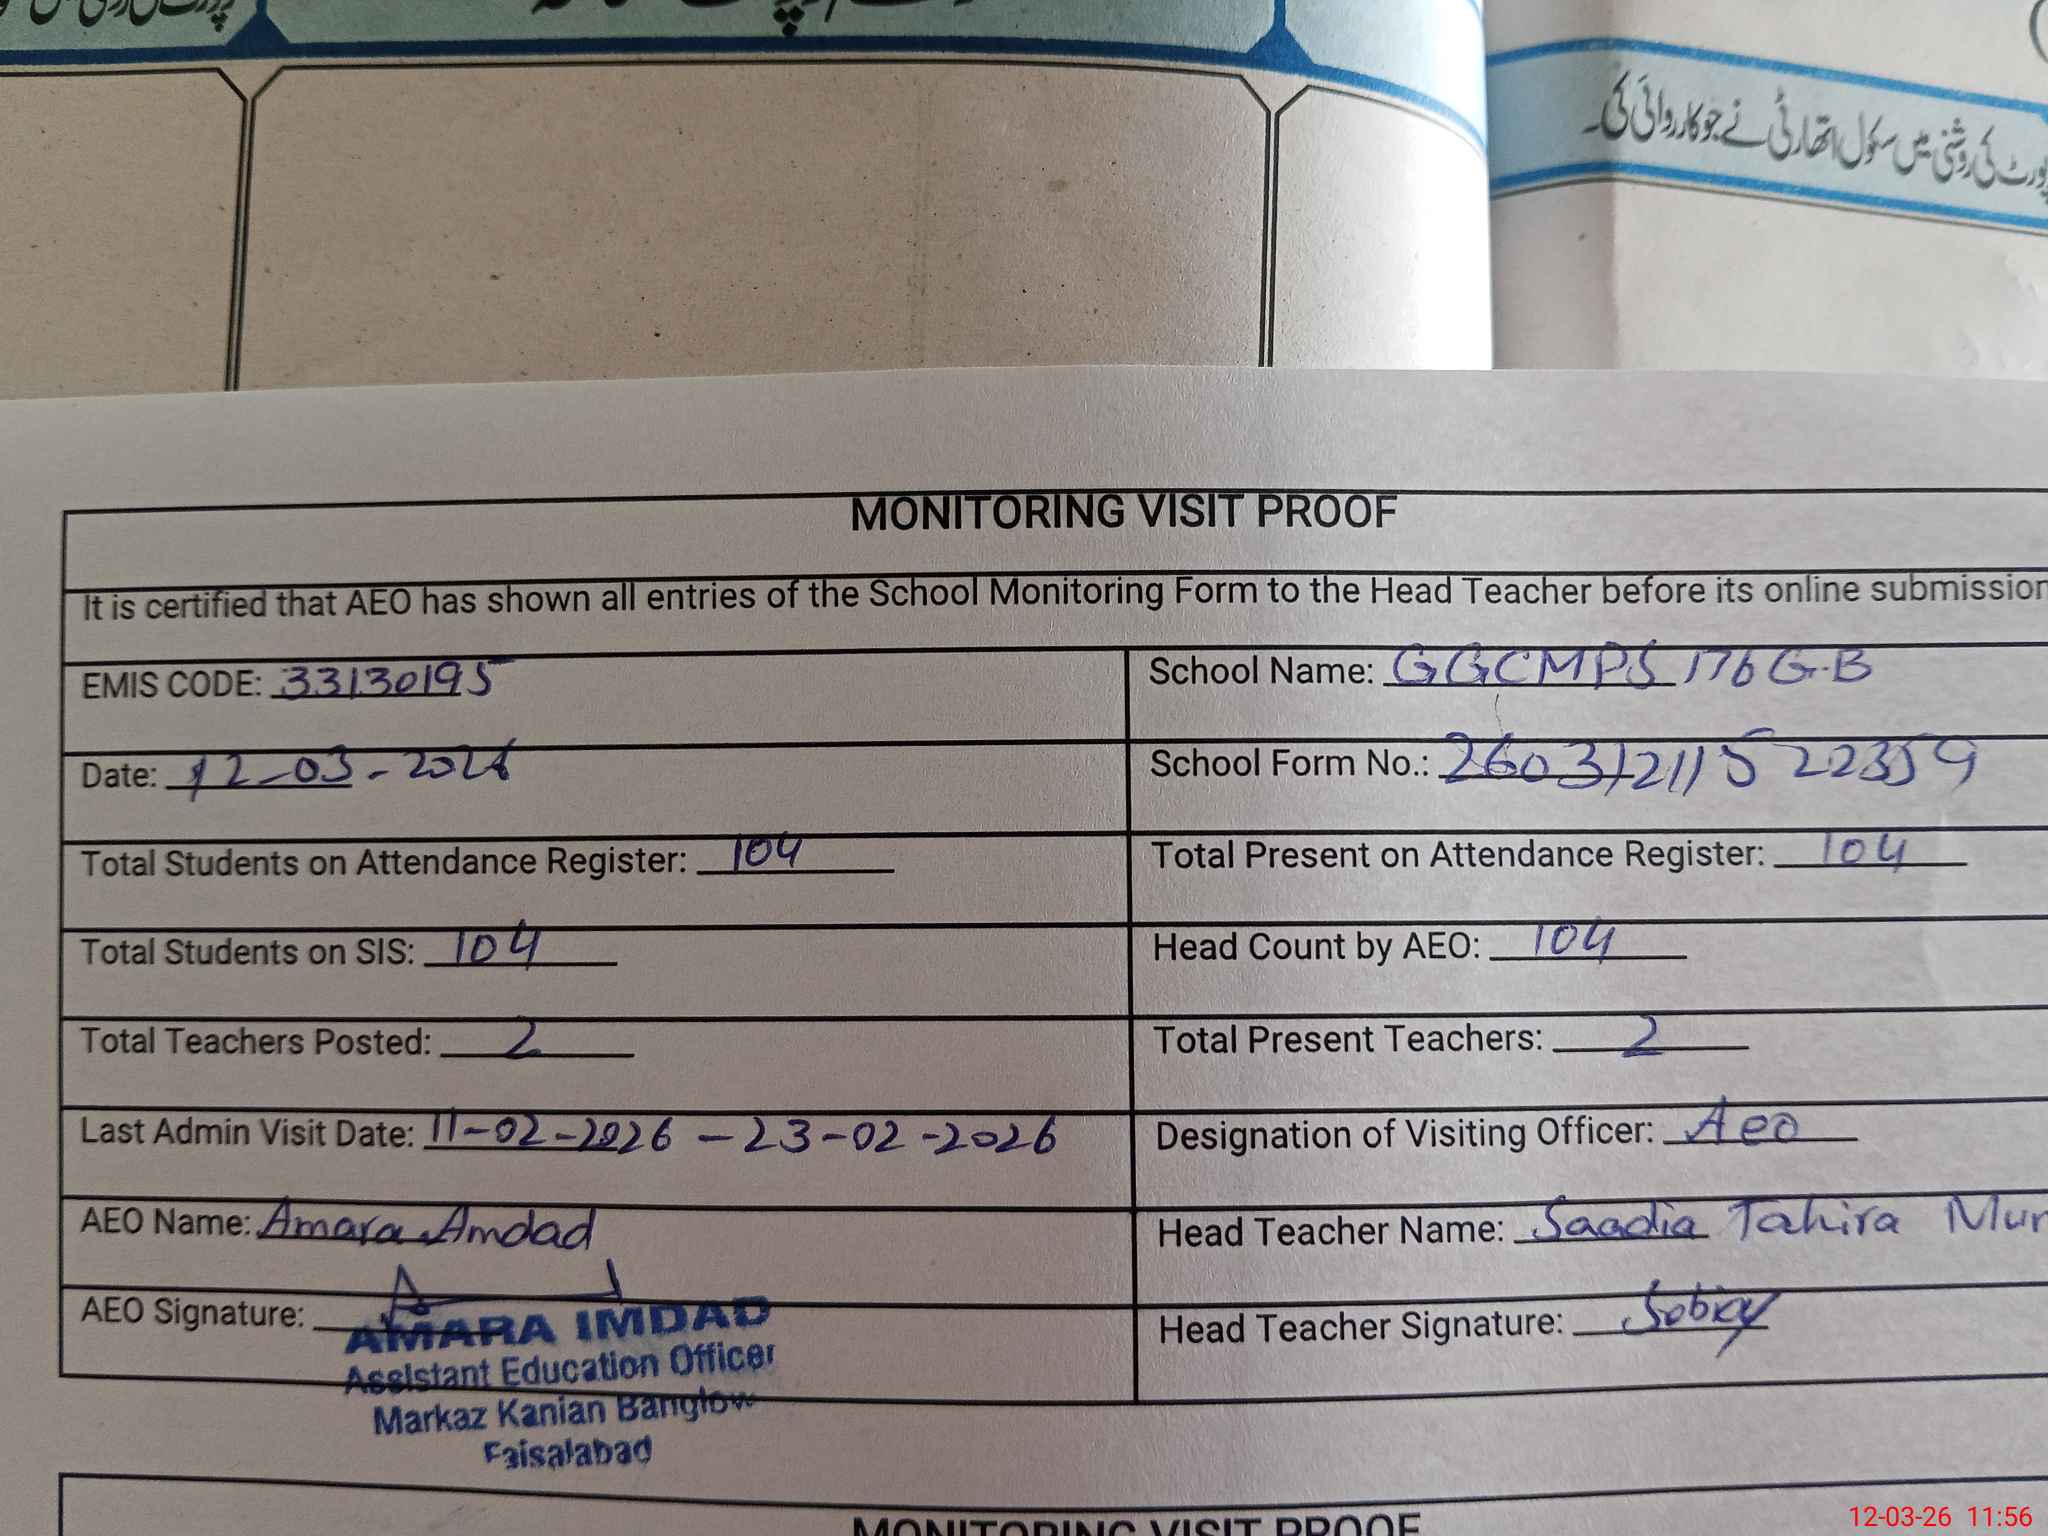 پورٹ کی روشنی میں سکول اتھارٹی نے جو کارروائی کی۔
MONITORING VISIT PROOF
It is certified that AEO has shown all entries of the School Monitoring Form to the Head Teacher before its online submission
EMIS CODE: 33130195
School Name: GGCMPS 176 G.B
Date: 12-03-2026
School Form No.: 260312115 22359
Total Students on Attendance Register: 104
Total Present on Attendance Register: 104
Total Students on SIS: 104
Head Count by AEO: 104
Total Teachers Posted: 2
Total Present Teachers: 2
Last Admin Visit Date: 11-02-2026 - 23-02-2026
Designation of Visiting Officer: Aeo
AEO Name: Amara Amdad
Head Teacher Name: Saadia Tahira Mur
AEO Signature:
Head Teacher Signature:
AMARA IMDAD
Assistant Education Officer
Markaz Kanian Banglow
Faisalabad
MONITORING VISIT PROOF
12-03-26 11:56